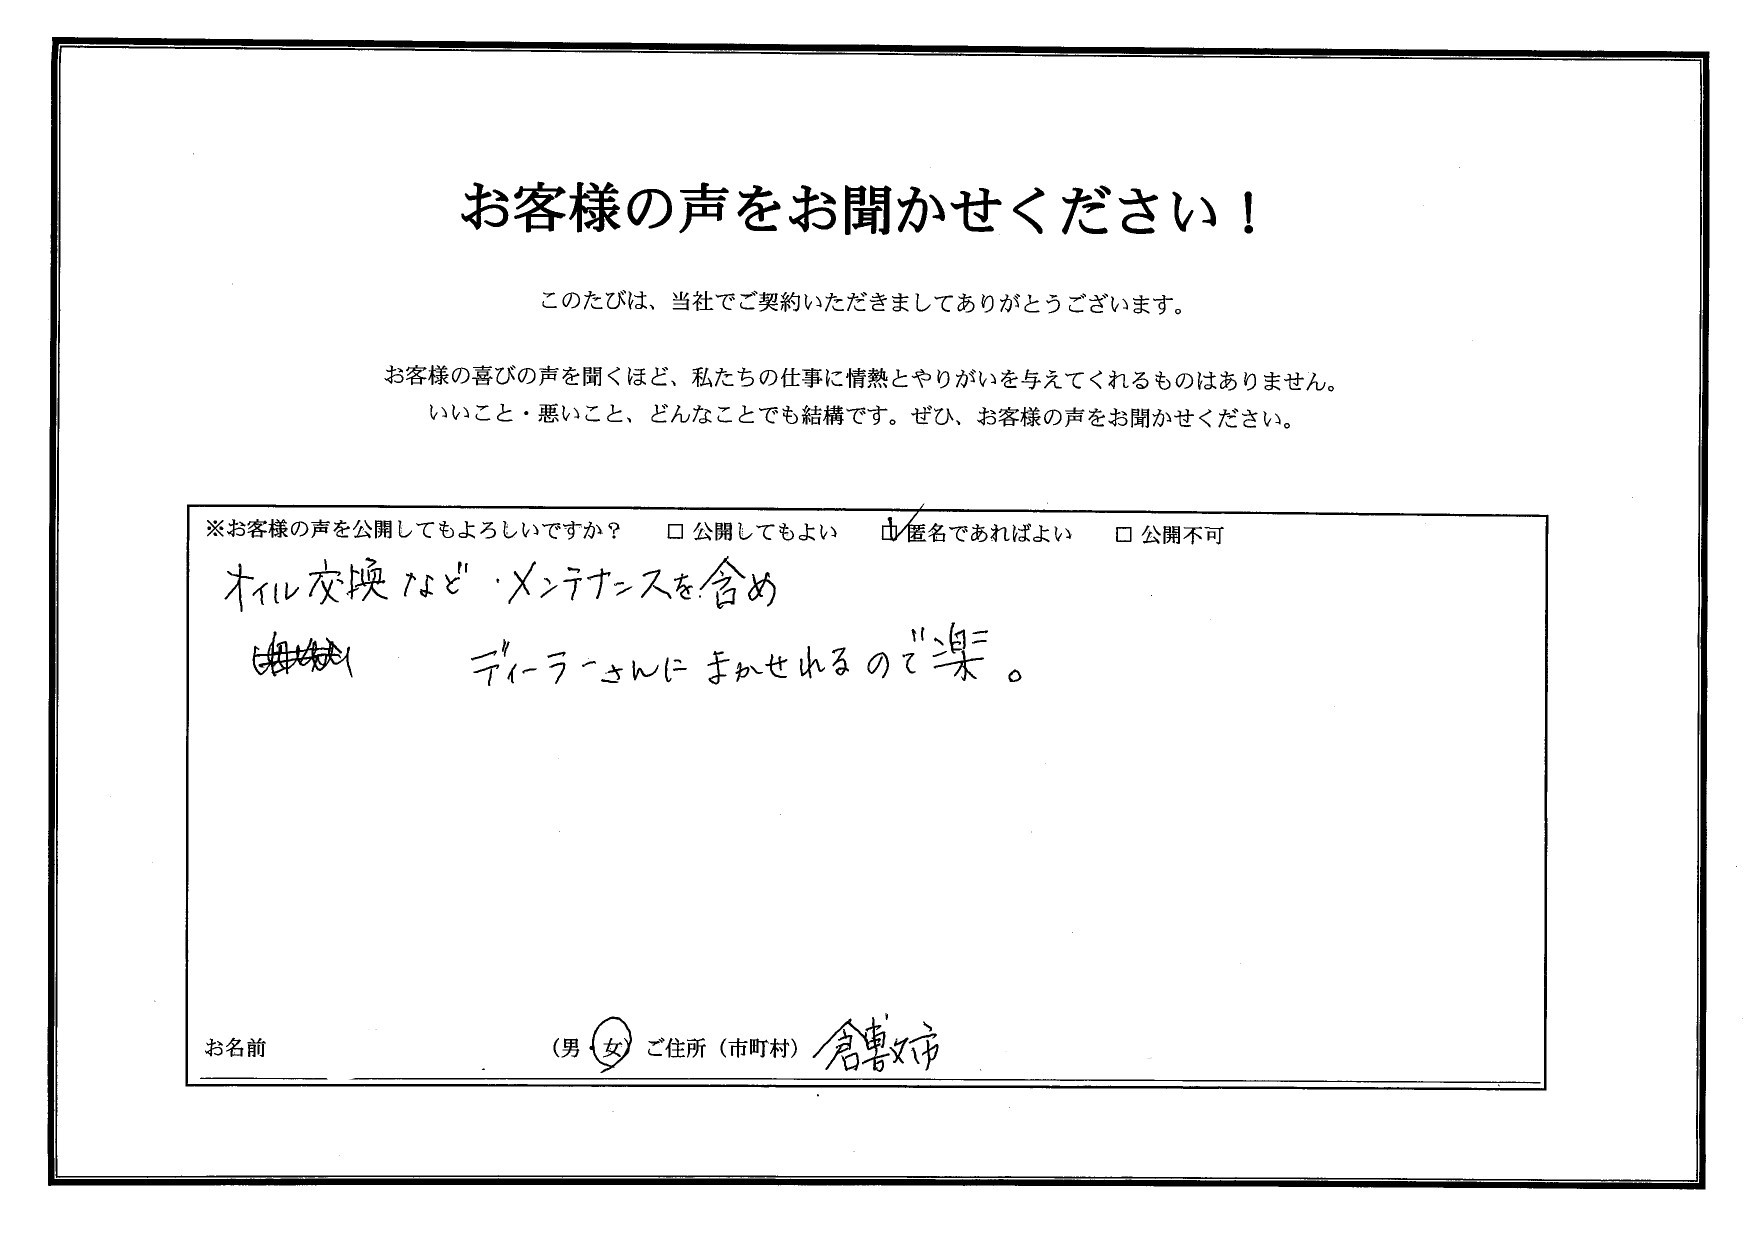 お客様の声をお聞かせください！
このたびは、当社でご契約いただきましてありがとうございます。
お客様の喜びの声を聞くほど、私たちの仕事に情熱とやりがいを与えてくれるものはありません。
いいこと・悪いこと、どんなことでも結構です。ぜひ、お客様の声をお聞かせください。
※お客様の声を公開してもよろしいですか？ □ 公開してもよい ☑ 匿名であればよい □ 公開不可
オイル交換など・メンテナンスを含め
ディーラーさんにまかせれるので楽。
お名前 （男・女）ご住所（市町村） 倉敷市